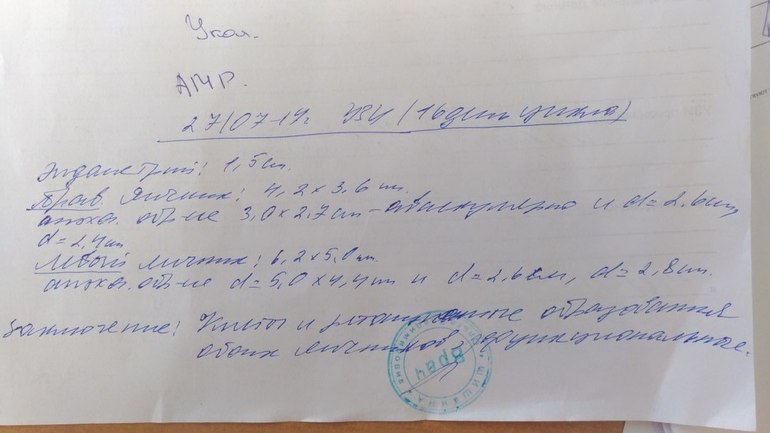 Укол.
АМР.
27/07-19г. УЗИ (16 день цикла)
Эндометрий: 1,5 см.
Прав. яичник: 4,2 х 3,6 см.
анэхо. обр-ие 3,0 х 2,7 см - аваскулярно и d=2,6 см,
d=2,4 см
Левый яичник: 6,2 х 5,0 см.
анэхо. обр-ие d=5,0 х 4,4 см и d=2,6 см, d=2,8 см.
Заключение: Кисты и образования
обоих яичников, функциональные.
врач